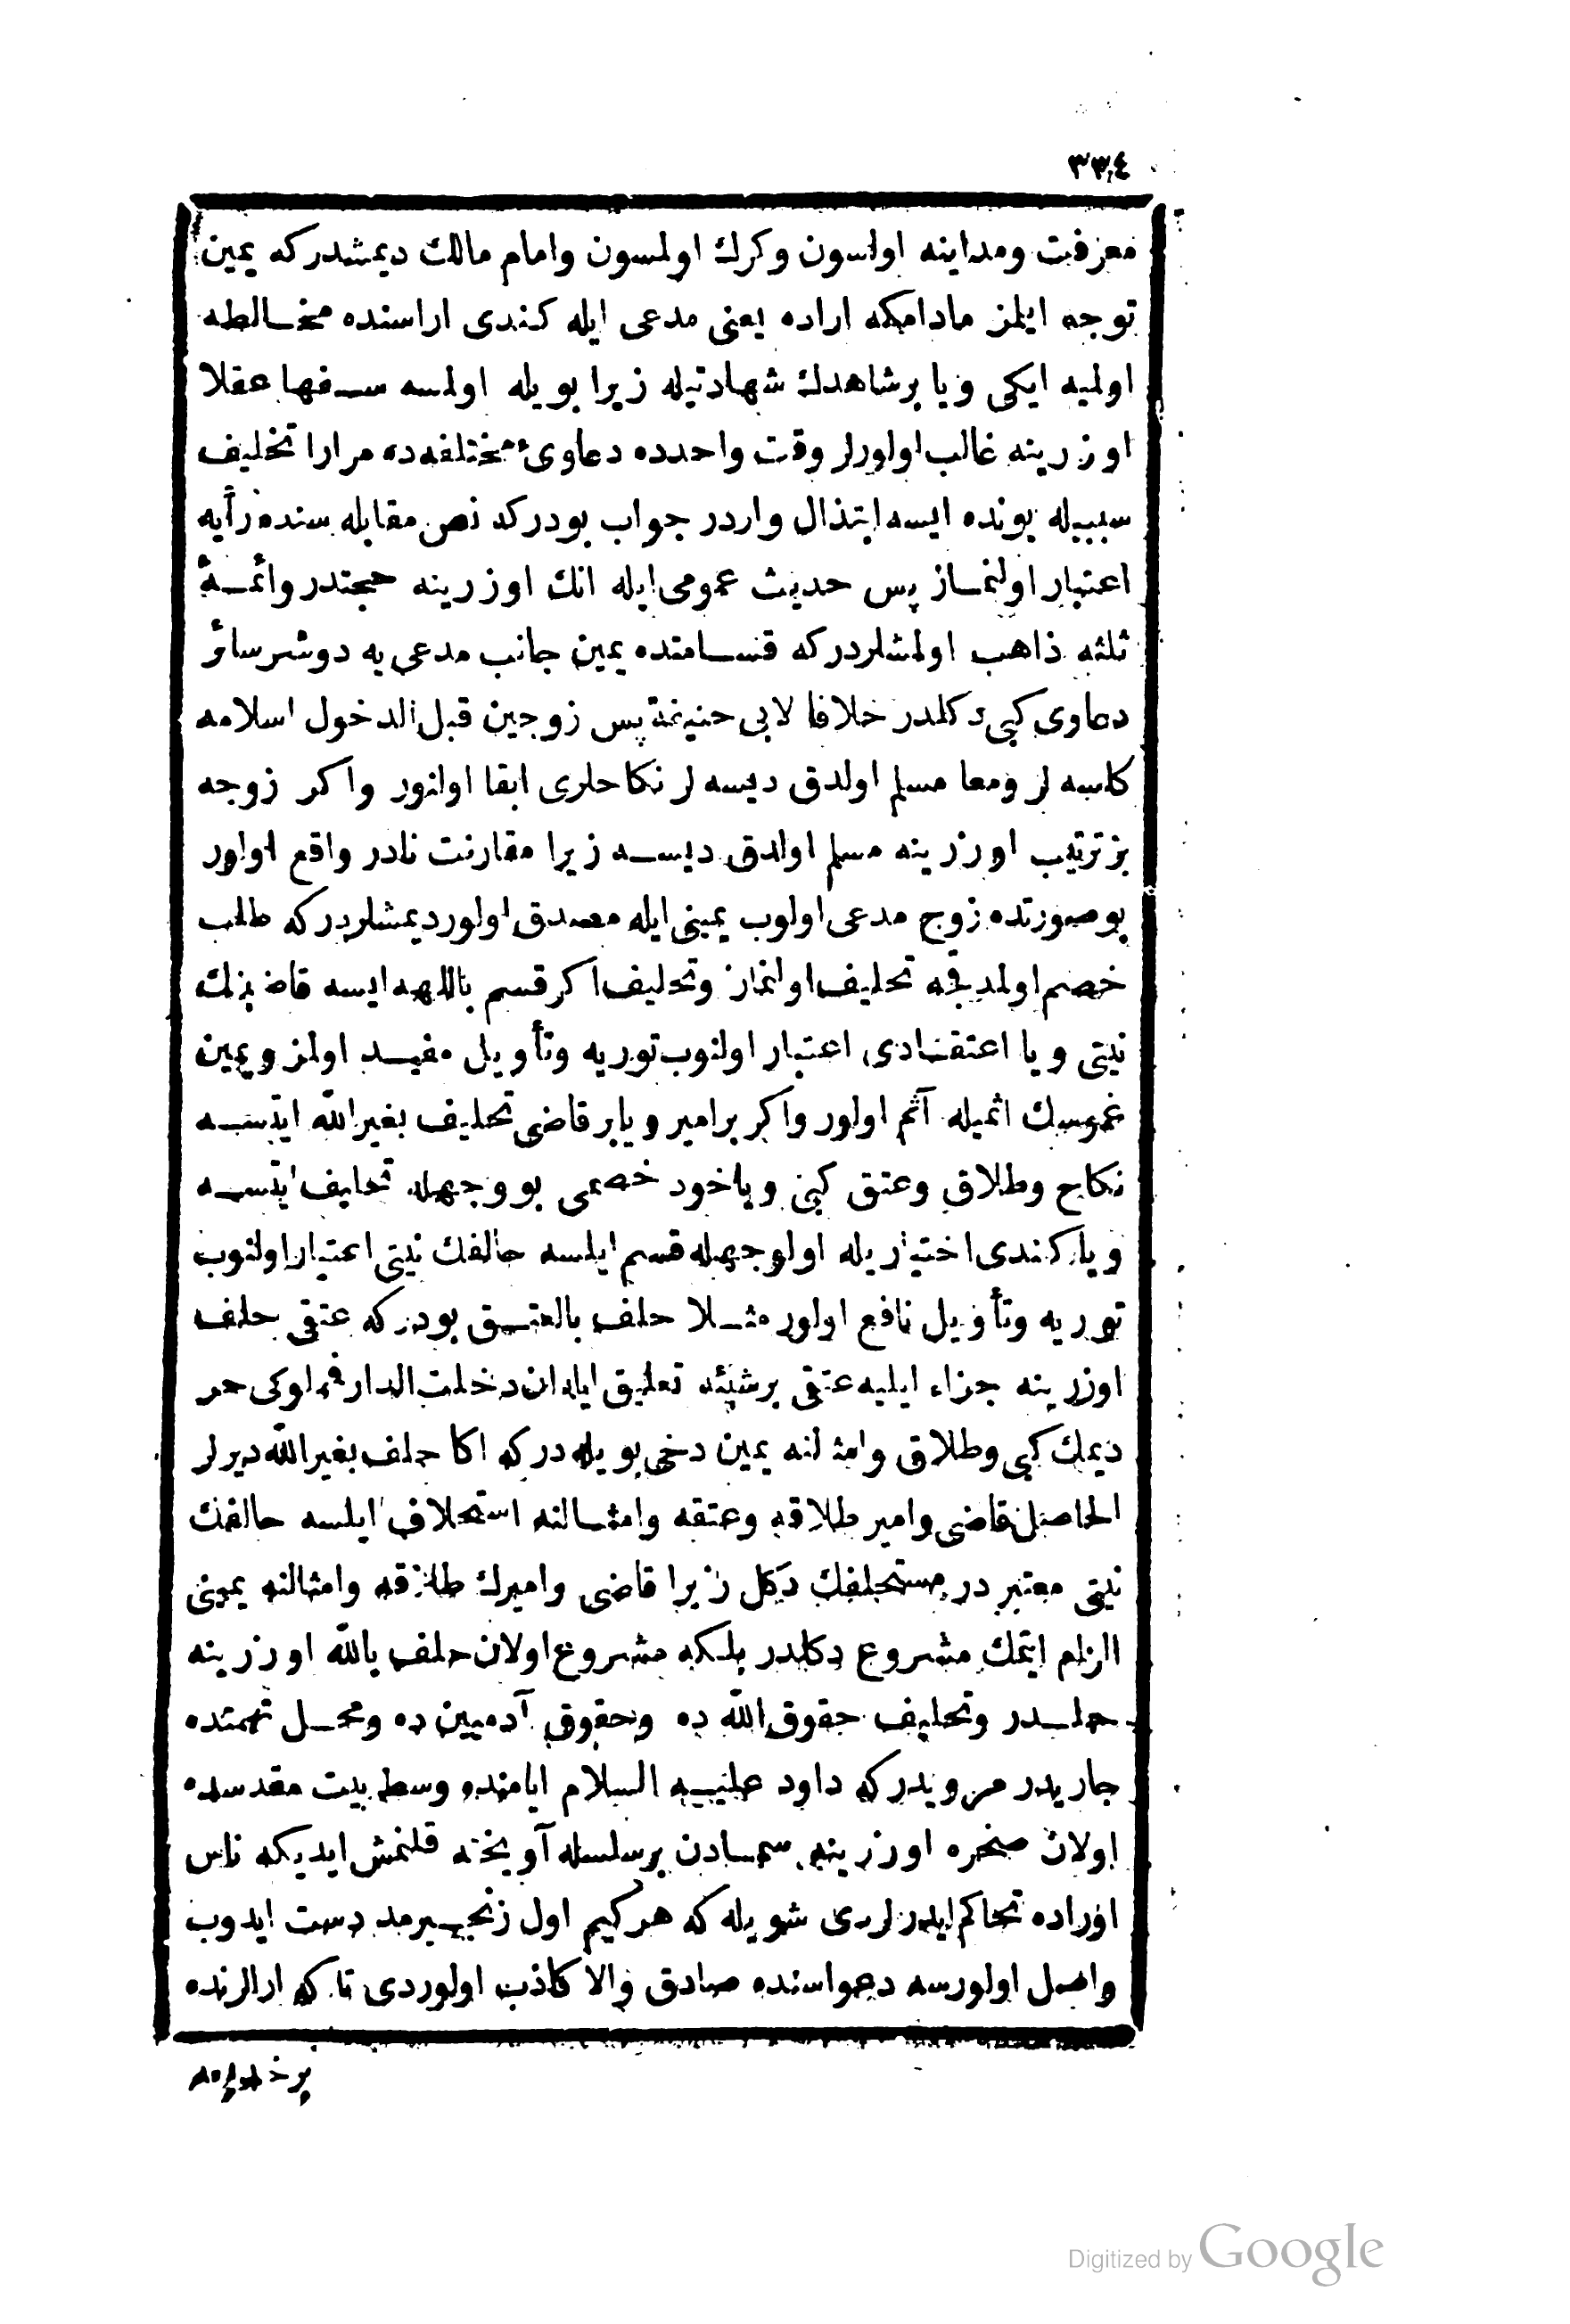 ٣٣٤
معرفت ومداینه اولسون وكرك اولمسون وامام مالك دیمشدركه یمین
توجه ایلمز مادامكه اراده یعنی مدعی ایله كندی اراسنده مخالطه
اولمیه ایكی ویا برشاهدك شهادتیله زیرا بویله اولسه سفها عقلا
اوزرینه غالب اولورلر وقت واحدده دعاوئ مختلفه ده مرارا تحلیف
سببیله بونده ایسه ابتذال واردر جواب بودركه نص مقابله سنده رأیه
اعتبار اولنماز پس حدیث عمومی ایله انك اوزرینه حجتدر وائمهٔ
ثلثه ذاهب اولمشلردركه قسامتده یمین جانب مدعی یه دوشر سائر
دعاوی كبی دكلدر خلافا لابی حنیفة پس زوجین قبل الدخول اسلامه
كلسه لر ومعا مسلم اولدق دیسه لر نكاحلری ابقا اولنور واكر زوجه
بز ترتیب اوزرینه مسلم اولدق دیسه زیرا مقارنت نادر واقع اولور
بوصورتده زوج مدعی اولوب یمینی ایله مصدق اولور دیمشلردركه طلب
خصم اولمدقجه تحلیف اولنماز وتحلیف اكر قسم باللهه ایسه قاضینك
نیتی ویا اعتقادی اعتبار اولنوب توریه وتأویل مفید اولمز ویمین
غموسك اثمیله آثم اولور واكر برامیر ویابر قاضی تحلیف بغیرالله ایتسه
نكاح وطلاق وعتق كبی ویاخود خصمی بووجهله تحلیف ایتسه
ویا كندی اختیاریله اولوجهله قسم ایلسه حالفك نیتی اعتبار اولنوب
توریه وتأویل نافع اولور مثلا حلف بالعتق بودركه عتقی حلف
اوزرینه جزاء ایلیه عتقی برشیئه تعلیق ایله ان دخلت الدار فملوكی حر
دیمك كبی وطلاق وامثالنه یمین دخی بویله دركه اكا حلف بغیرالله دیرلر
الحاصل قاضی وامیر طلاقه وعتقه وامثالنه استحلاف ایلسه حالفك
نیتی معتبردر مستحلفك دكل زیرا قاضی وامیرك طلاقه وامثالنه یمینی
الزام ایتمك مشروع دكلدر بلكه مشروع اولان حلف بالله اوزرینه
حملدر وتحلیف حقوق الله ده وحقوق آدمیین ده ومحل تهمتده
جاریدر مرویدركه داود علیه السلام ایامنده وسط بیت مقدسده
اولان صخره اوزرینه سمادن برسلسله آویخته قلنمش ایدیكه ناس
اوراده تحاكم ایدرلردی شویله كه هركیم اول زنجیرمد دست ایدوب
واصل اولورسه دعواسنده صادق والا كاذب اولوردی تاكه ارالرنده
Digitized by Google